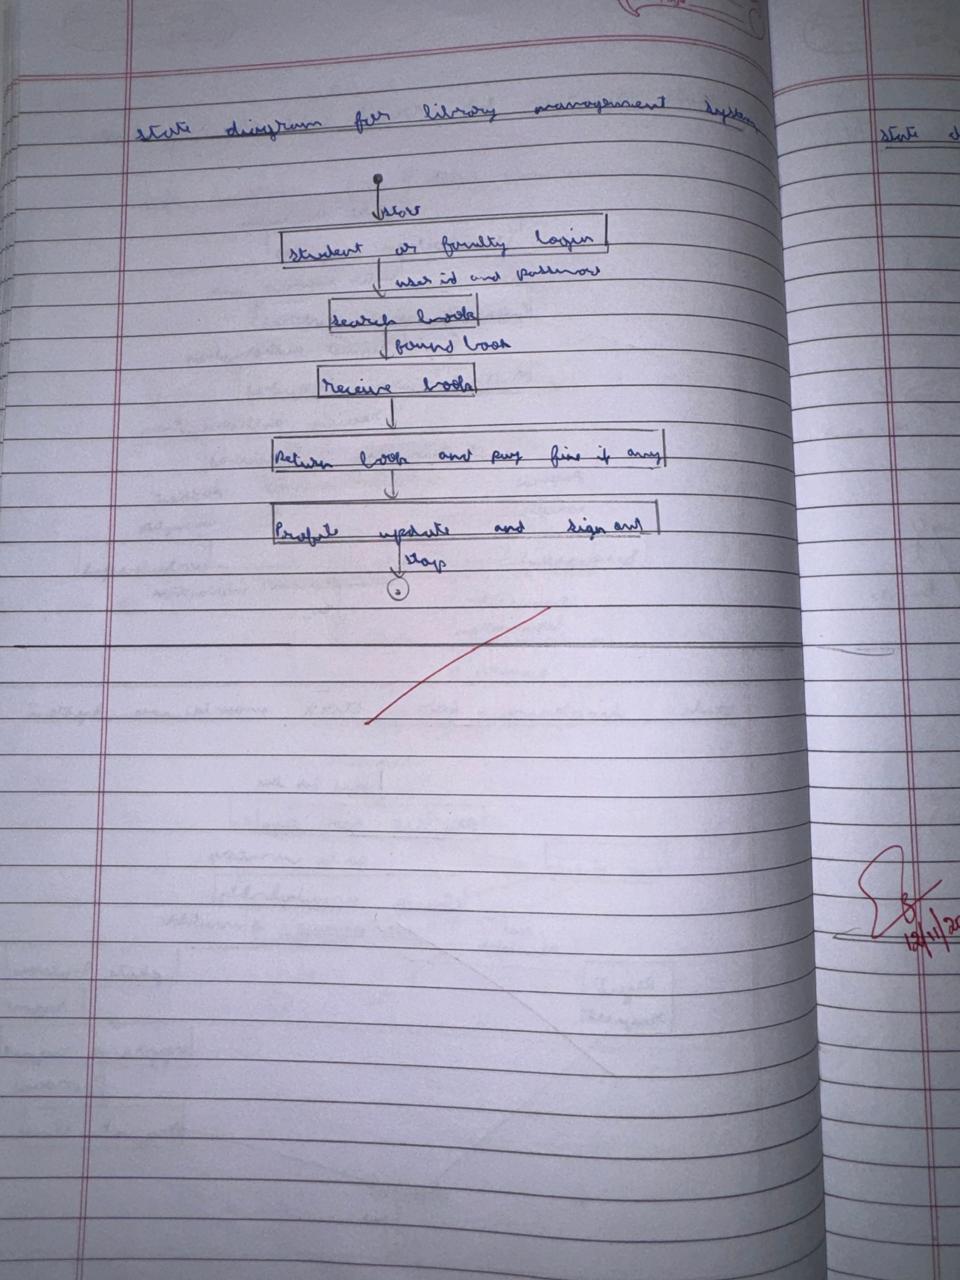 state diagram for library management system
start
student or faculty login
user id and password
search book
found book
receive book
Return book and pay fine if any
Profile update and sign out
stop
state
12/11/20